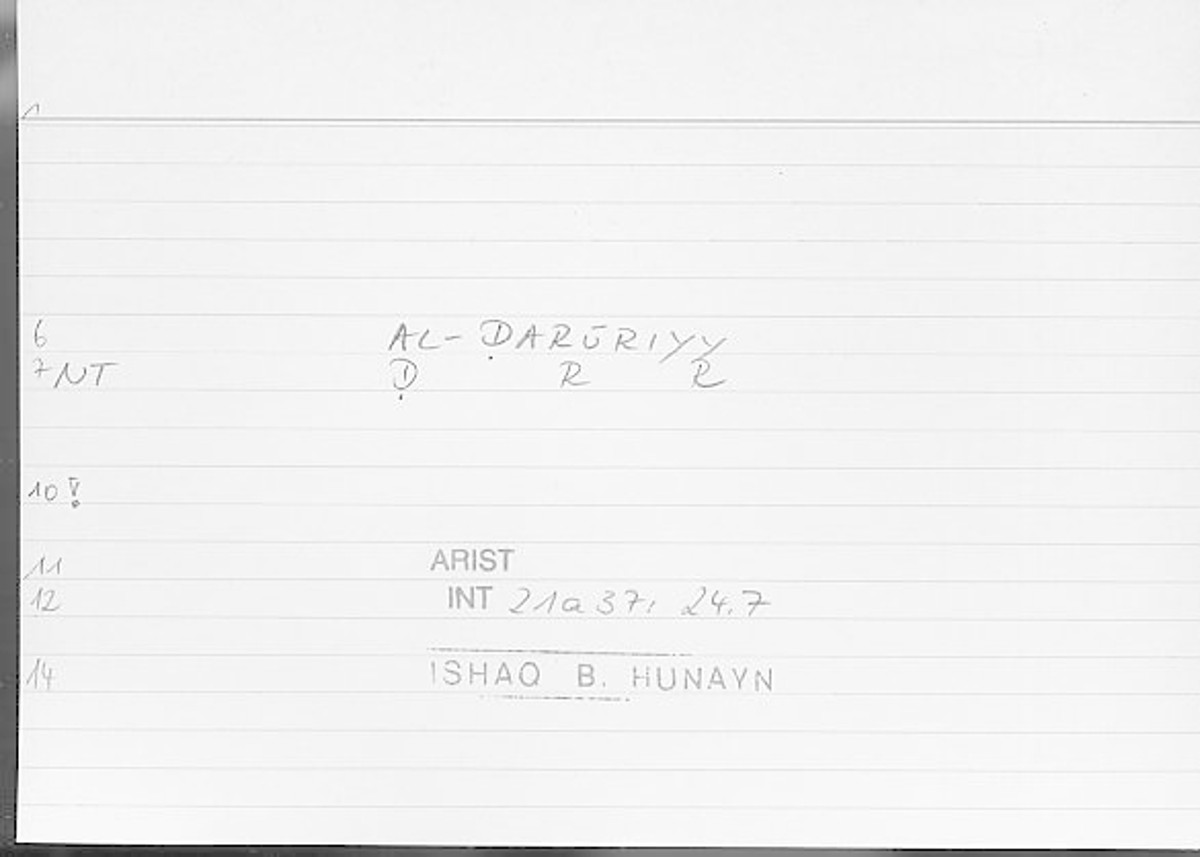 1
6 AL-ḌARŪRIYY
7 NT Ḍ R R
10 !
11 ARIST
12 INT 21a37; 24.7
14 ISHAQ B. HUNAYN